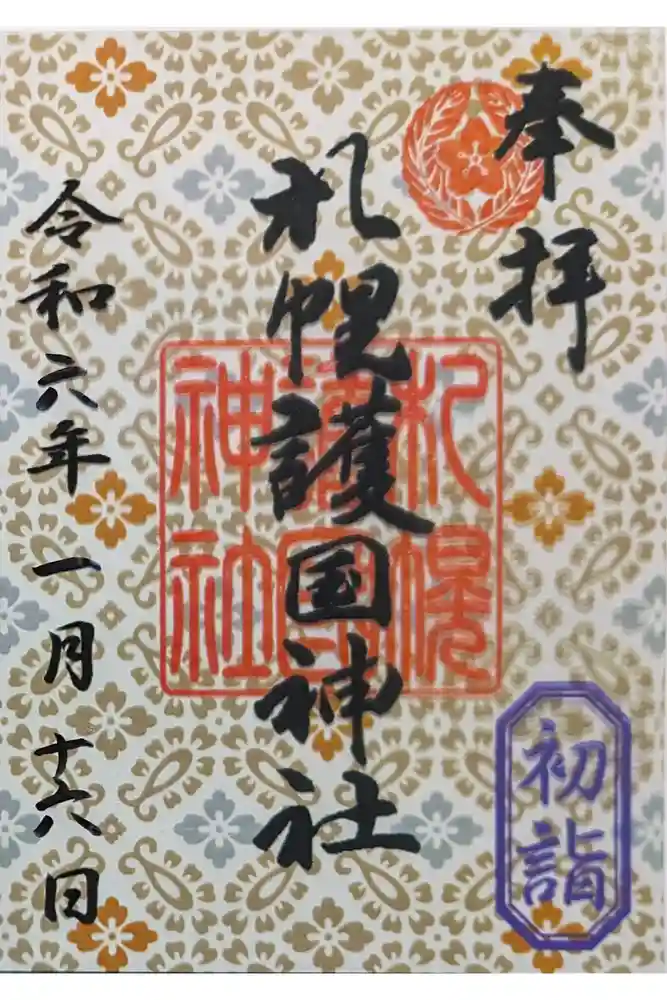 奉拝
札幌護国神社
札幌護国神社
初詣
令和六年一月十六日